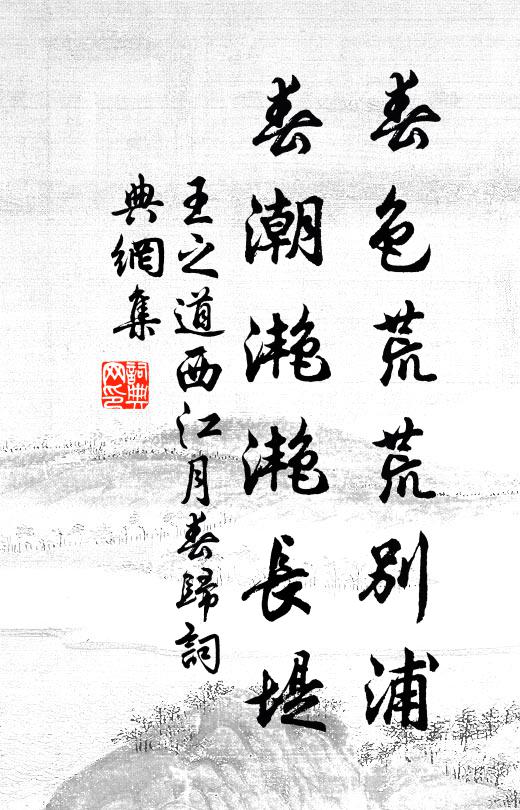 春色荒荒別浦
春潮灔灔長堤
王之道西江月春歸詞
典網集
詞典
网印